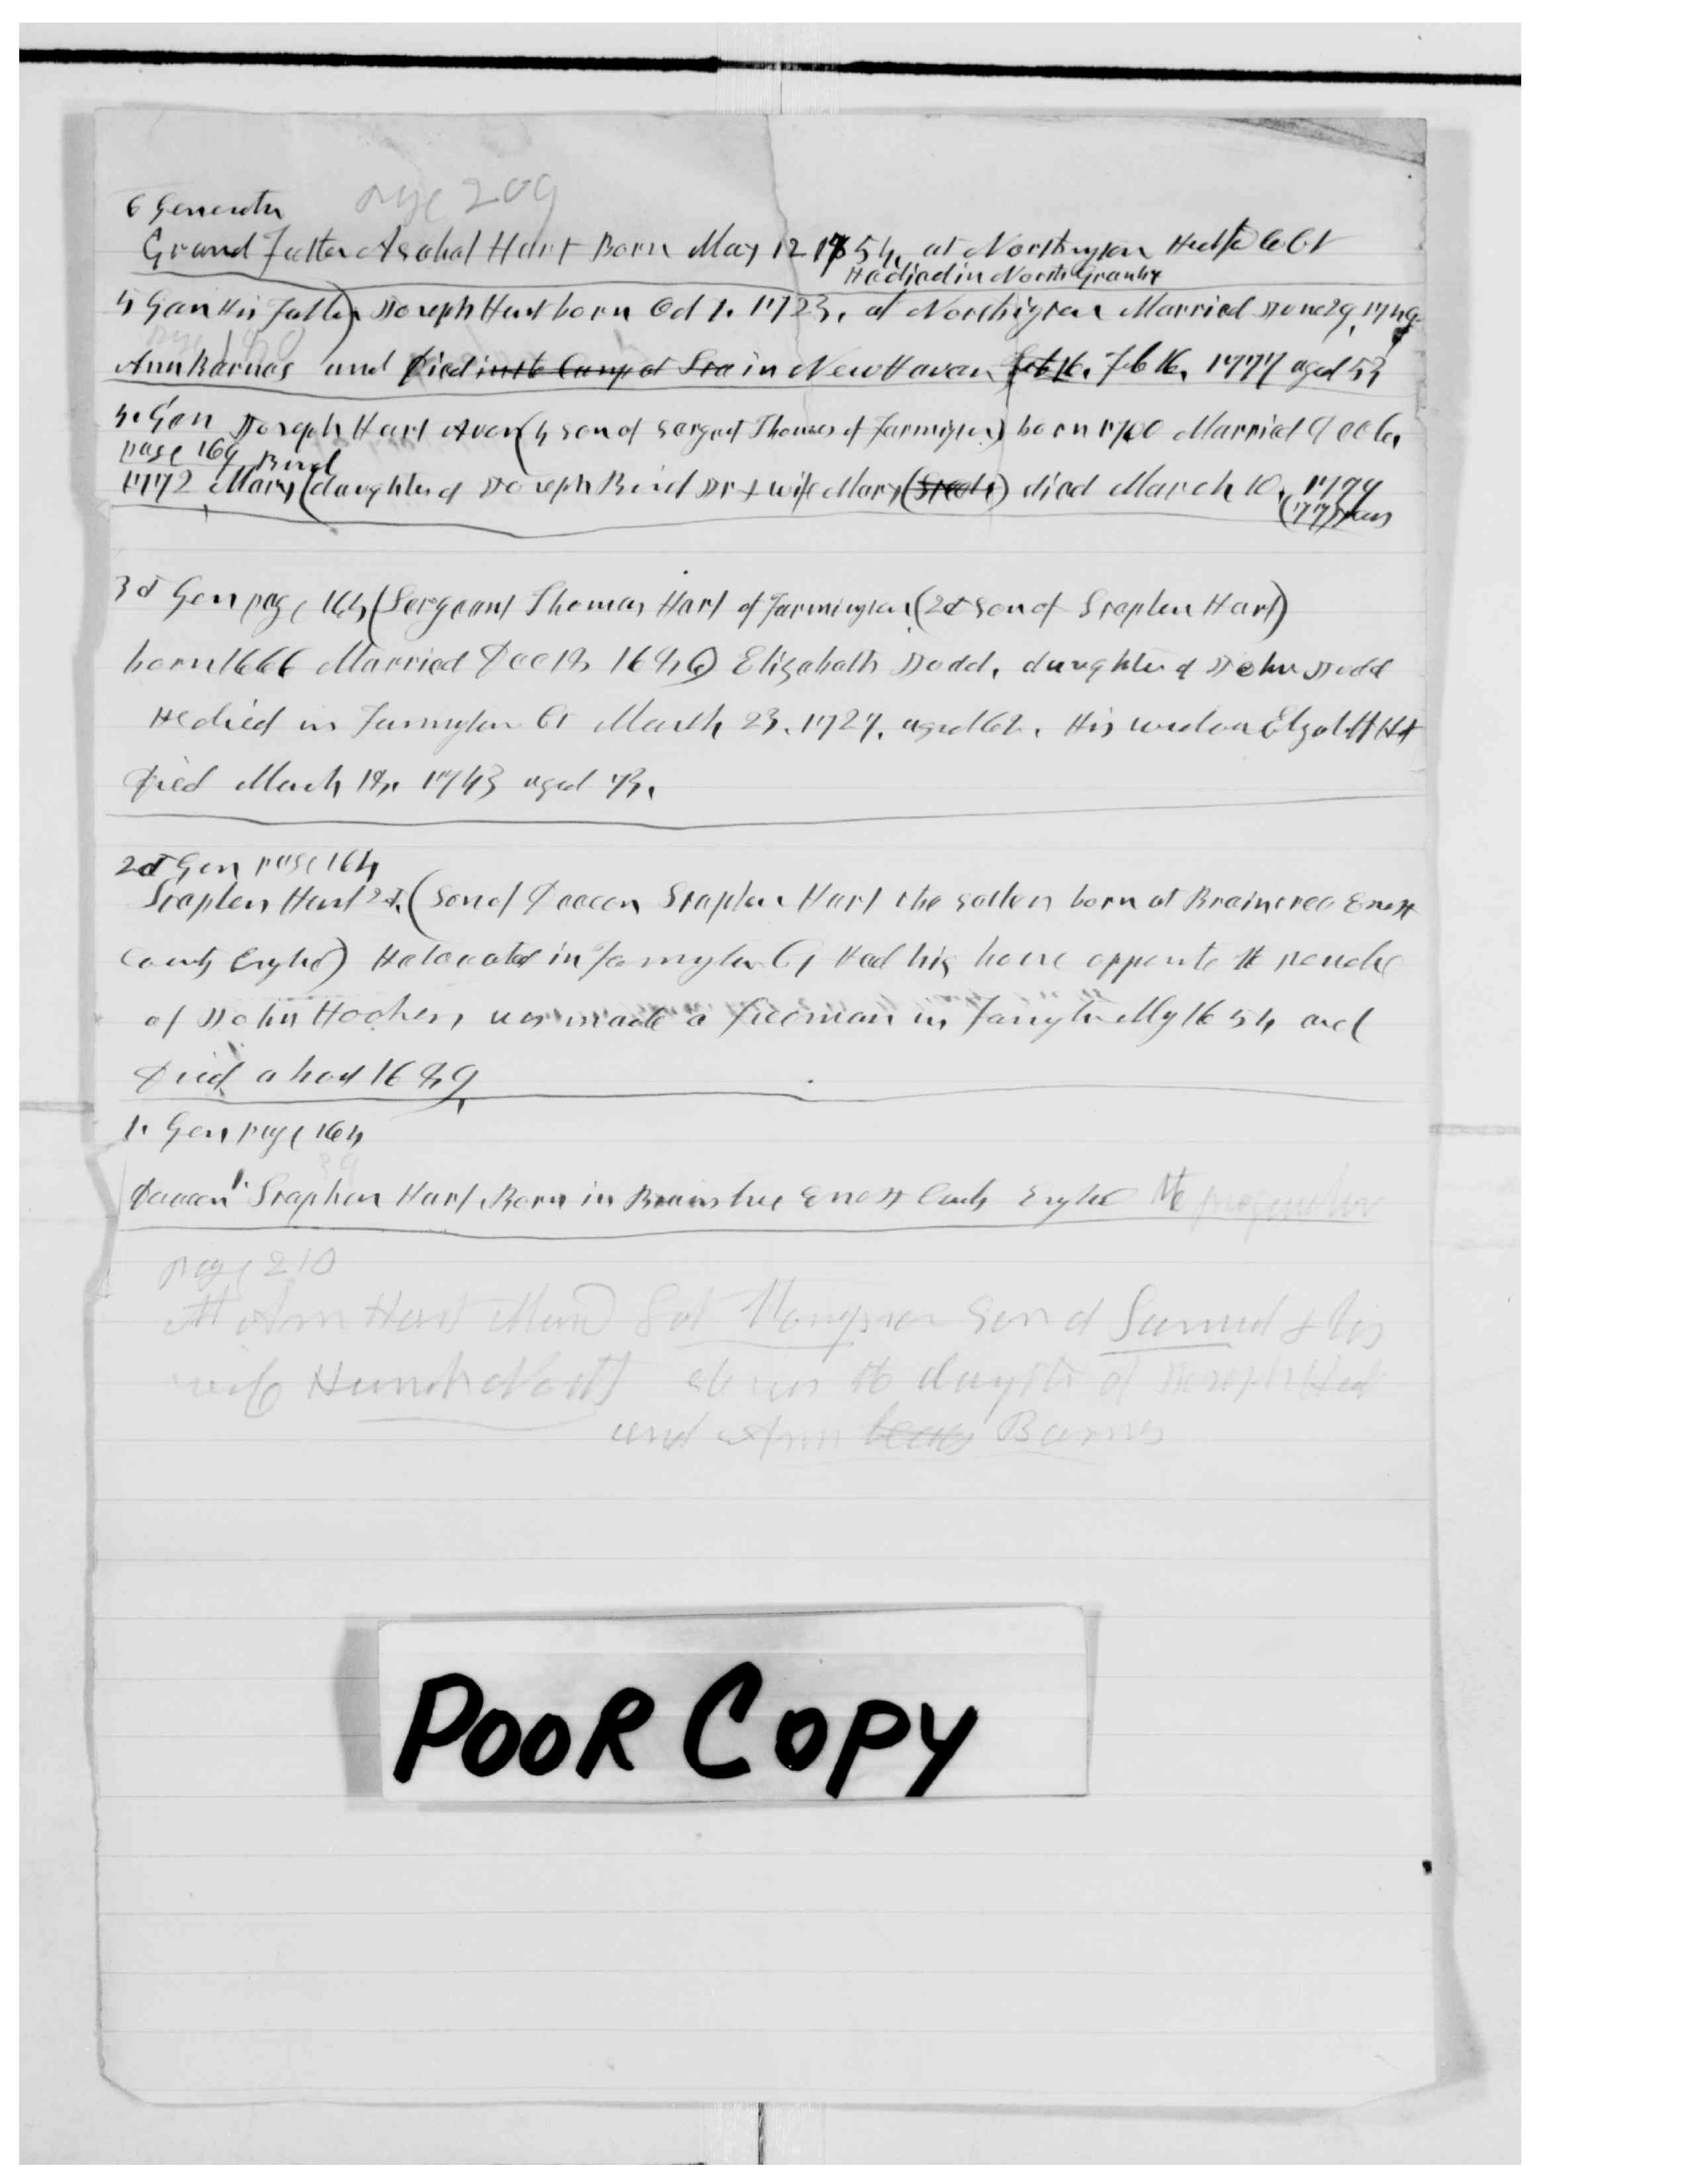 page 209
6 Generatn
Grand Father Asahal Hart Born May 12 1754, at Northington Co Ct
He died in North Granby
5 Gen His Father) Joseph Hart born Oct 1. 1723, at Northington Married June 29, 1749
Ann Barnes and died in the Camp at in New Haven Feb 16. Feb 16, 1777 aged 53
4. Gen Joseph Hart Avon (4 son of Sargent Thomas of Farmington) born 1700 Married Dec 6,
page 169 Bird
1772 Mary (daughter of Joseph Bird Jr & wife Mary (Steele) died March 10, 1779
(77) years
3d Gen page 164 (Sergeant Thomas Hart of Farmington (2d son of Stephen Hart)
born 1666 Married Dec 18, Elizabeth Dodd, daughter of John Dodd
He died in Farmington Ct March 23, 1727, aged 62. His widow Elzabth Ht
died March 18, 1743 aged 73,
2d Gen page 164
Stephen Hart 2d, (Son of Deacon Stephen Hart the settler born at Braintree Essex
County England) He located in Farmington Ct Had his house opposite the
of John Hooker, was made a freeman in Farmgtn May 1654 and
died about 1689
1. Gen page 164
Deacon 1. Stephen Hart Born in Braintree Essex County England the progenitor
page 210
Ann Hart Mard Sol Thompson Son of Samuel & his
wife Hannah Nott she was the daughter of Joseph Hart
and Ann Barnes
POOR COPY